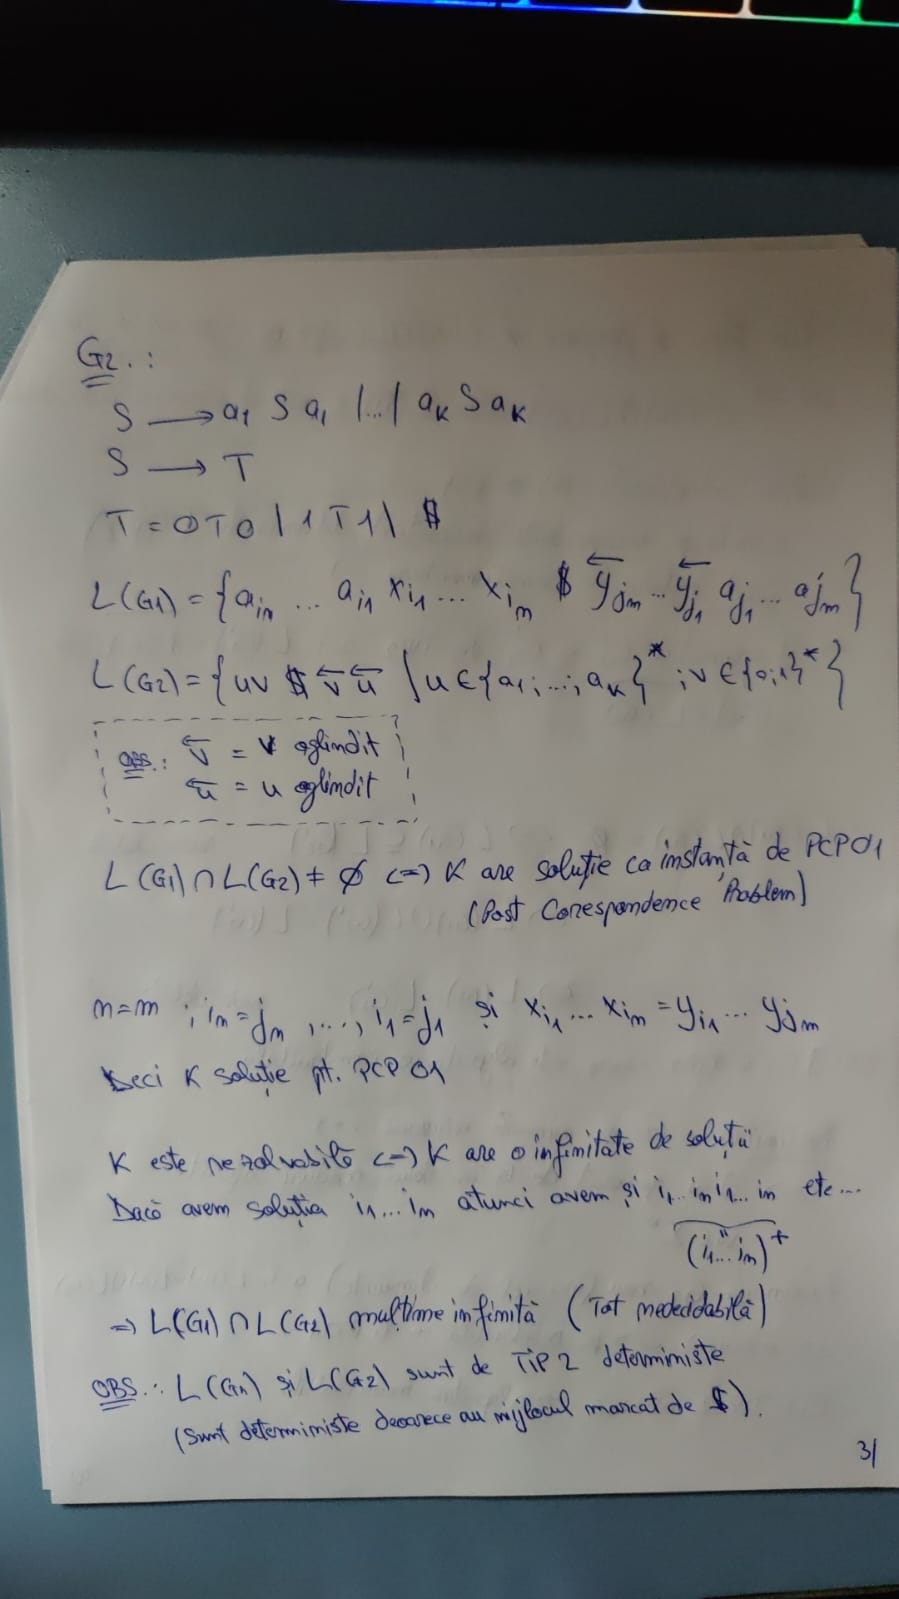 G2.:
S → a1 S a1 |...| aK S aK
S → T
T = 0T0 | 1T1 | $
L(G1) = {ain ... ai1 xi1 ... xim $ ȳjm ... ȳj1 aj1 ... ajm}
L(G2) = {uv $ v̄ ū | u ∈ {a1,...,aK}* ; v ∈ {0,1}*}
OBS.: v̄ = v oglindit
ū = u oglindit
L(G1) ∩ L(G2) ≠ ∅ <=> K are soluție ca instanță de PCP01
(Post Corespondence Problem)
n=m ; in=jm ,..., i1=j1 și xi1 ... xim = yi1 ... yjm
Deci K soluție pt. PCP 01
K este rezolvabilă <=> K are o infinitate de soluții
Dacă avem soluția i1...im atunci avem și i1...in i1...in etc...
(i1...in)+
=> L(G1) ∩ L(G2) mulțime infinită (Tot nedecidabilă)
OBS.: L(G1) și L(G2) sunt de TIP 2 deterministe
(Sunt deterministe deoarece au mijlocul marcat de $).
3/